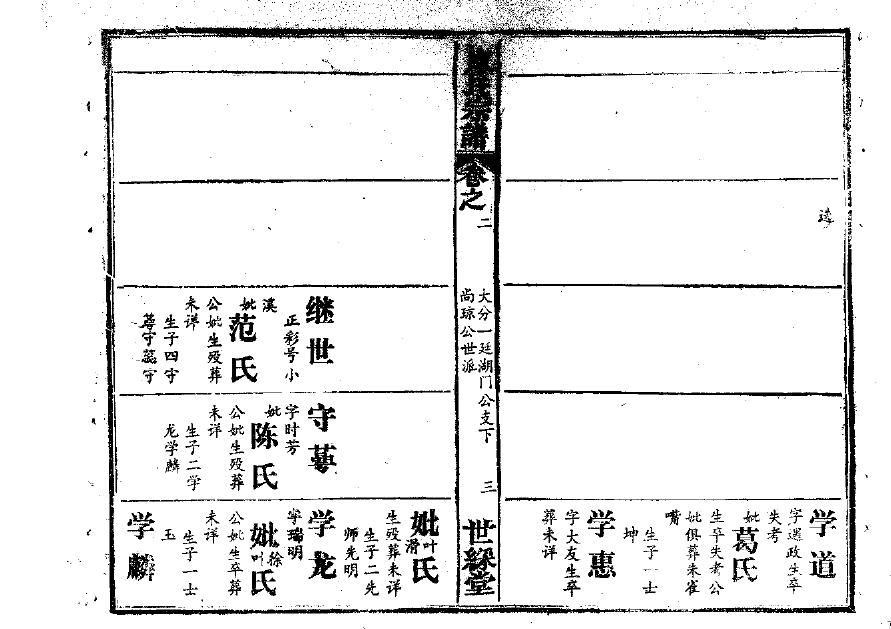 远
学道
字选政生卒
失考
妣葛氏
生卒失考公
妣俱葬朱雀
嘴
生子一士
坤
学惠
字大友生卒
葬未详
氏宗譜
卷之二
大分一廷湖门公支下
尚琼公世派
三
世綵堂
继世
正彩号小
溪
妣范氏
公妣生殁葬
未详
生子四守
守
守
字时芳
妣陈氏
公妣生殁葬
未详
生子二学
龙学麟
妣叶氏
生殁葬未详
生子二先
师先明
学龙
字瑞明
妣徐叶氏
公妣生卒葬
未详
生子一士
玉
学麟